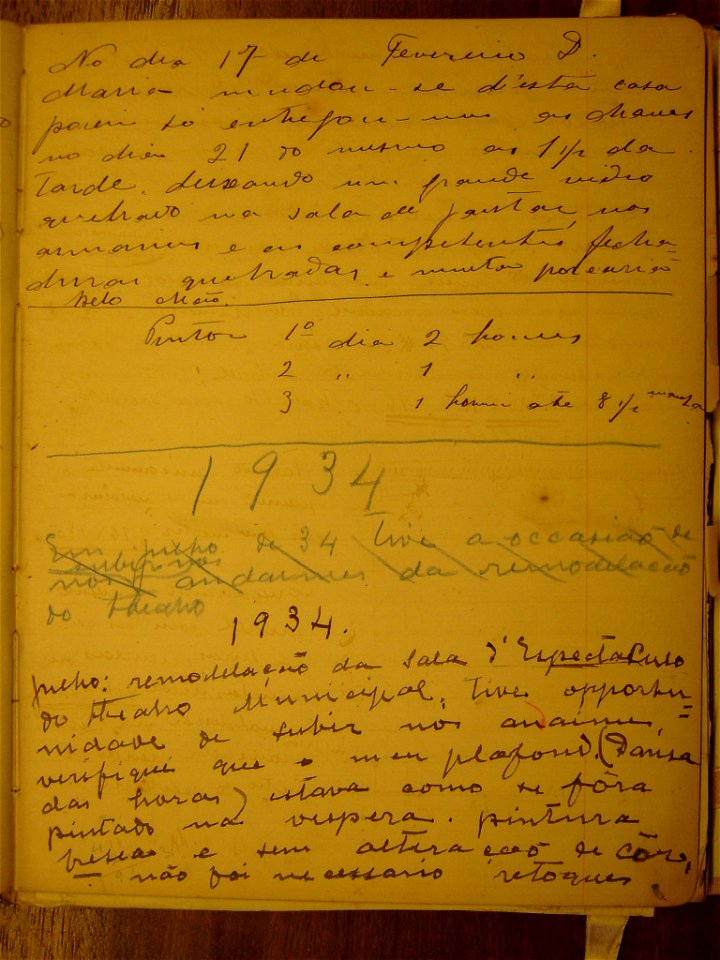 No dia 17 de Fevereiro D.
Maria mudou-se d'esta casa
porem só entregou-nos as chaves
no dia 21 do mesmo as 1 1/2 da
tarde, deixando um grande vidro
quebrado na sala de jantar, nos
armarios e as competentes fecha-
duras quebradas e muita porcaria
pelo chão.
Pintor 1º dia 2 homens
2 " 1 "
3 1 homem até 8 1/2
1934
Em julho de 34 tive a occasião de
subir nos
nos andaimes da remodelação
do theatro
1934.
julho: remodelação da sala d'Espectaculo
do theatro Municipal, tive opportu=
nidade de subir nos andaimes,
verifiquei que o meu plafond. (Dansa
das horas) estava como se fôra
pintado na vespera. pintura
fresca e sem alteração de côr,
não foi necessario retoques